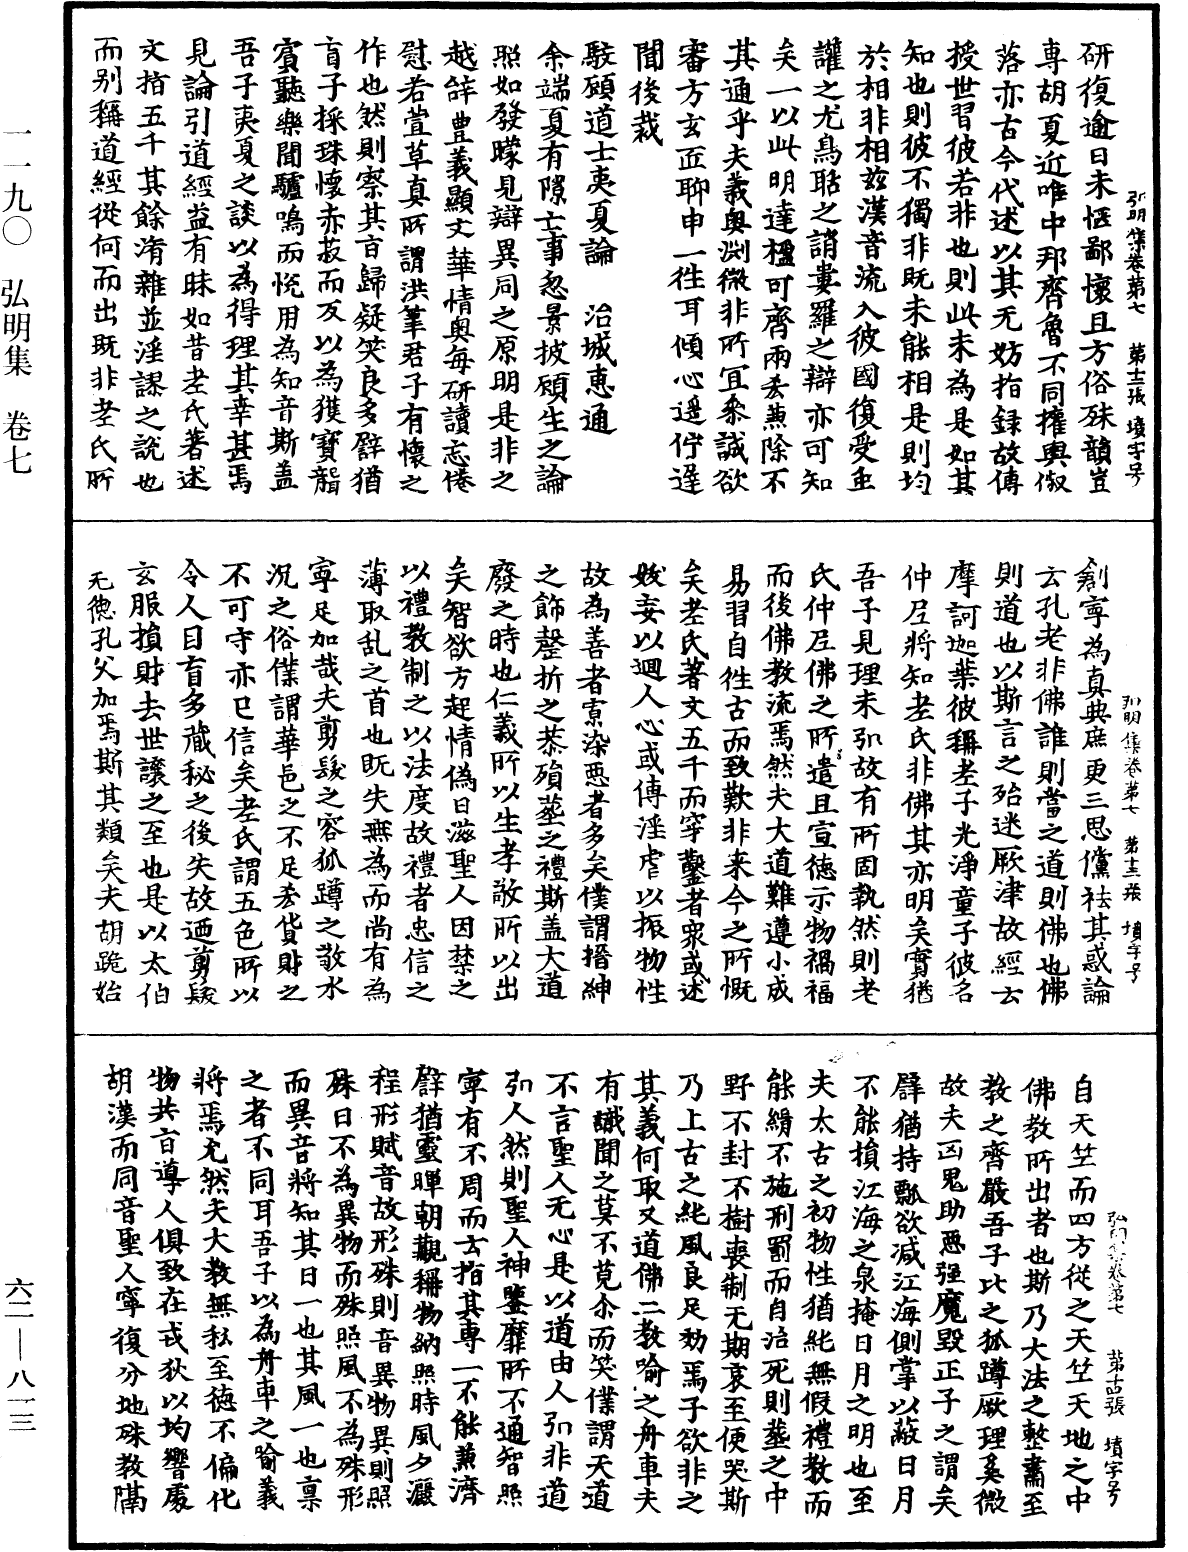 研復逾日未惬鄙懷且方俗殊韻豈
專胡夏近唯中邦齊魯不同權輿俶
落亦古今代述以其无妨指録故傳
授世習彼若非也則此未為是如其
知也則彼不獨非既未能相是則均
於相非相玆漢音流入彼國復受虫
讙之尤鳥聒之誚婁羅之辯亦可知
矣一以此明達楹可齊兩吝兼除不
其通乎夫義奥渕微非所冝叅誠欲
審方玄匠聊申一徃耳傾心遲佇逹
聞後裁
駁顧道士夷夏論　治城惠通
余端夏有隟亡事忽景披顧生之論
照如發矇見辯異同之原明是非之
越辝豊義顯文華情奥每研讀忘倦
慰若萱草真所謂洪筆君子有懷之
作也然則察其言歸疑笑良多譬猶
盲子採珠懷赤菽而反以為獲寶聾
賔聽樂聞驢鳴而恱用為知音斯盖
吾子夷夏之談以為得理其幸甚焉
見論引道經益有昧如昔老氏著述
文指五千其餘淆雜並淫謬之說也
而别稱道經從何而出既非老氏所
弘明集卷第七　第十二張　墳字号
創寧為真典庶更三思儻祛其惑論
云孔老非佛誰則當之道則佛也佛
則道也以斯言之殆迷厥津故經云
摩訶迦葉彼稱老子光淨童子彼名
仲尼將知老氏非佛其亦明矣實猶
吾子見理未弘故有所固執然則老
氏仲尼佛之所遣且宣德示物禍福
而後佛教流焉然夫大道難遵小成
易習自徃古而致歎非来今之所慨
矣老氏著文五千而穿鑿者衆或述
妓妄以迴人心或傳淫虐以振物性
故為善者寡染惡者多矣僕謂搢紳
之飾罄折之恭殞葬之禮斯盖大道
廢之時也仁義所以生孝敬所以出
矣智欲方起情偽日滋聖人因禁之
以禮教制之以法度故禮者忠信之
薄取乱之首也既失無為而尚有為
寧足加哉夫剪髪之容狐蹲之敬水
沉之俗僕謂華邑之不足吝貨財之
不可守亦已信矣老氏謂五色所以
令人目盲多藏秘之後失故迺剪髪
玄服損財去世讓之至也是以太伯
无德孔父加焉斯其類矣夫胡跪始
弘明集卷第七　第十三張　墳字号
自天竺而四方從之天竺天地之中
佛教所出者也斯乃大法之整肅至
教之齊嚴吾子比之狐蹲厥理奚微
故夫凶鬼助惡强魔毀正子之謂矣
譬猶持瓢欲减江海側掌以蔽日月
不能損江海之泉掩日月之明也至
夫太古之初物性猶純無假禮教而
能緝不施刑罰而自治死則葬之中
野不封不樹喪制无期哀至便哭斯
乃上古之純風良足効焉子欲非之
其義何取又道佛二教喻之舟車夫
有識聞之莫不莧尒而笑僕謂天道
不言聖人无心是以道由人弘非道
弘人然則聖人神鑒靡所不通智照
寧有不周而云指其專一不能兼濟
譬猶靈暉朝覯稱物納照時風夕灑
程形賦音故形殊則音異物異則照
殊日不為異物而殊照風不為殊形
而異音將知其日一也其風一也禀
之者不同耳吾子以為舟車之喻義
將焉允然夫大教無私至德不偏化
物共旨導人俱致在戎狄以均響處
胡漢而同音聖人寧復分地殊教隔
弘明集卷第七　第十四張　墳字号
一一九〇　弘明集　卷七
六二—八一三